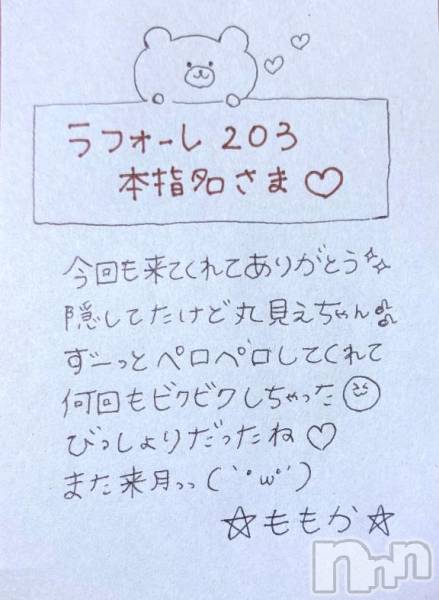 ラフォーレ 203
本指名さま♡
今回も来てくれてありがとう✨
隠してたけど丸見えちゃん♫
ずーっとペロペロしてくれて
何回もビクビクしちゃった
びっしょりだったね♡
また来月っっ(`･ω･´)
☆ももか☆
nnn